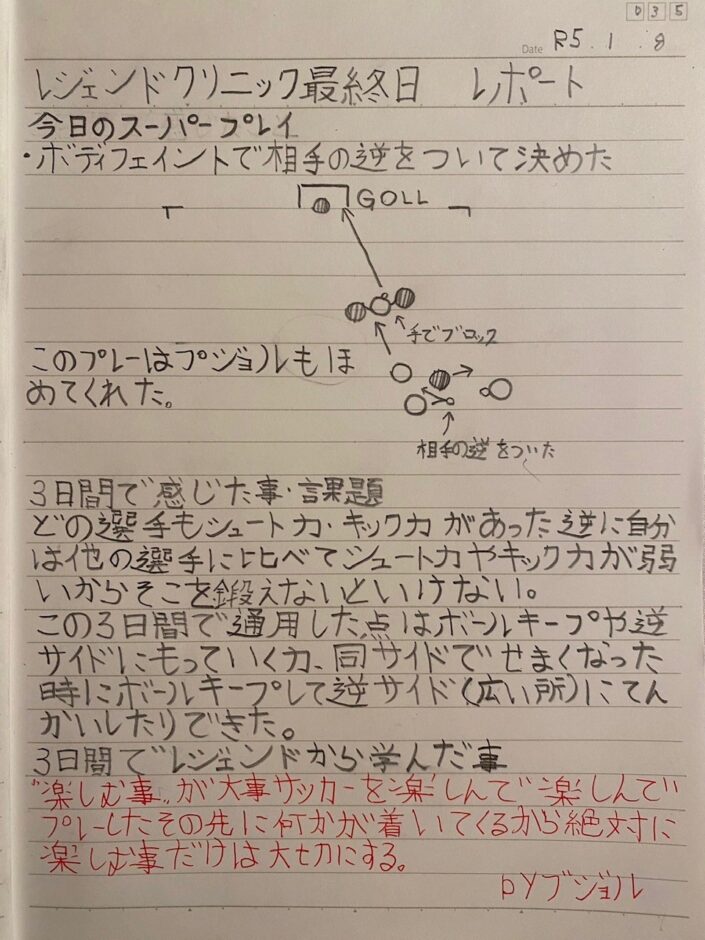 035
Date R5.1.8
レジェンドクリニック最終日 レポート
今日のスーパープレイ
・ボディフェイントで相手の逆をついて決めた
GOLL
手でブロック
このプレーはプジョルもほ
めてくれた。
相手の逆をついた
3日間で感じた事・課題
どの選手もシュート力・キック力があった逆に自分
は他の選手に比べてシュート力やキック力が弱
いからそこを鍛えないといけない。
この3日間で通用した点はボールキープや逆
サイドにもっていく力、同サイドでせまくなった
時にボールキープして逆サイド(広い所)にてん
かいしたりできた。
3日間でレジェンドから学んだ事
"楽しむ事"が大事サッカーを楽しんで楽しんで
プレーしたその先に何かが着いてくるから絶対に
楽しむ事だけは大切にする。
byプジョル